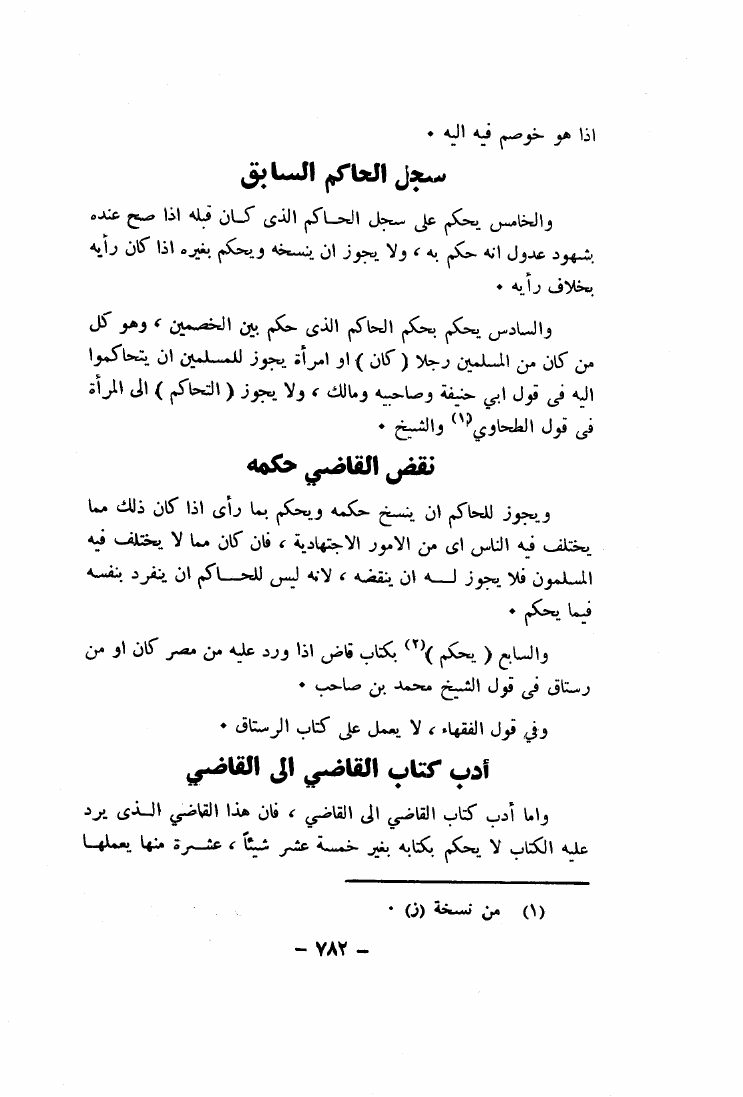 اذا هو خوصم فيه اليه .
سجل الحاكم السابق
والخامس يحكم على سجل الحاكم الذى كان قبله اذا صح عنده
بشهود عدول انه حكم به ، ولا يجوز ان ينسخه ويحكم بغيره اذا كان رأيه
بخلاف رأيه .
والسادس يحكم بحكم الحاكم الذى حكم بين الخصمين ، وهو كل
من كان من المسلمين رجلا ( كان ) او امرأة يجوز للمسلمين ان يتحاكموا
اليه فى قول ابي حنيفة وصاحبيه ومالك ، ولا يجوز ( التحاكم ) الى المرأة
فى قول الطحاوي (١) والشيخ .
نقض القاضي حكمه
ويجوز للحاكم ان ينسخ حكمه ويحكم بما رأى اذا كان ذلك مما
يختلف فيه الناس اى من الامور الاجتهادية ، فان كان مما لا يختلف فيه
المسلمون فلا يجوز له ان ينقضه ، لانه ليس للحاكم ان ينفرد بنفسه
فيما يحكم .
والسابع ( يحكم )(٢) بكتاب قاض اذا ورد عليه من مصر كان او من
رستاق فى قول الشيخ محمد بن صاحب .
وفي قول الفقهاء ، لا يعمل على كتاب الرستاق .
أدب كتاب القاضي الى القاضي
واما أدب كتاب القاضي الى القاضي ، فان هذا القاضي الذى يرد
عليه الكتاب لا يحكم بكتابه بغير خمسة عشر شيئاً ، عشرة منها يعملها
(١) من نسخة (ز) .
– ٧٨٢ –